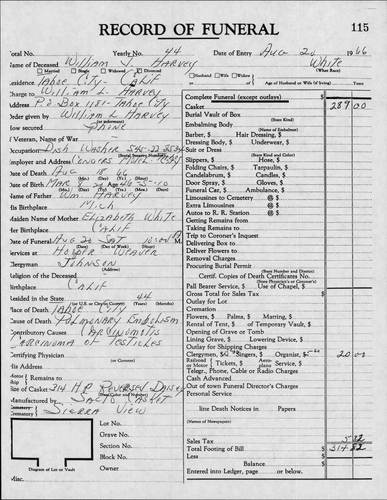 RECORD OF FUNERAL
115
Total No.
Yearly No. 44
Date of Entry Aug 20 1966
Name of Deceased William J. Harvey
White
(What Race)
Married Single Widowed Divorced
Husband Wife Widow of
Age of Husband or Wife (if living)
Residence Tahoe City - Calif
Charge to William L. Harvey
Address P.O Box 1181 - Tahoe City
Order given by William L. Harvey
How secured Phone
If Veteran, Name of War
Occupation Dish Washer
Employer and Address
Date of Death Aug 18 66
Date of Birth Mar 8 20 Age 46 5-10
Name of Father Wm. Harvey
His Birthplace Mich
Maiden Name of Mother Elizabeth White
Her Birthplace Calif
Date of Funeral Aug 20 Sat 10:00 A M.
Services at Hooper Weaver
Clergyman Johnson
(Address)
Religion of the Deceased
Birthplace Calif
Resided in the State 44
(or U.S. or City or County) (Years) (Months)
Place of Death Tahoe City
Cause of Death Pulmonary Embolism
Contributory Causes Carcinomatis
Carcinoma of Testicles
Certifying Physician
(or Coroner)
His Address
Remains to
Size of Casket
Manufactured by
Cemetery
Sierra View
Lot No.
Grave No.
Section No.
Block No.
Owner
Diagram of Lot or Vault
Misc.
Complete Funeral (except outlays) $
Casket 289 00
Burial Vault of Box
(State Kind)
Embalming Body
(Name of Embalmer)
Barber, $ Hair Dressing, $
Dressing Body, $ Underwear, $
Suit or Dress
(State Kind and Color)
Slippers, $ Hose, $
Folding Chairs, $ Tarpaulin, $
Candelabrum, $ Candles, $
Door Spray, $ Gloves, $
Funeral Car, $ Ambulance, $
Limousines to Cemetery @ $
Extra Limousines @ $
Autos to R. R. Station @ $
Getting Remains from
Taking Remains to
Trip to Coroner's Inquest
Delivering Box to
Deliver Flowers to
Removal Charges
Procuring Burial Permit
(State Number and District)
Certif. Copies of Death Certificates No.
(State Physician's or Coroner's)
Pall Bearer Service, $ Use of Chapel, $
Gross Total for Sales Tax $
Outlay for Lot
Cremation
Flowers, $ Palms, $ Marring, $
Rental of Tent, $ of Temporary Vault, $
Opening of Grave or Tomb
Lining Grave, $ Lowering Device, $
Outlay for Shipping Charges
Clergymen, $ Singers, $ Organist, $ 20 00
Railroad or Motor Tickets, $ Aeroplane Service, $
Telegr., Phone, Cable or Radio Charges
Cash Advanced
Out of town Funeral Director's Charge
Personal Service
line Death Notices in Papers
(Names of Newspapers)
Sales Tax
Total Footing of Bill $ 314 32
Less
Balance $
Entered into Ledger, page or below.